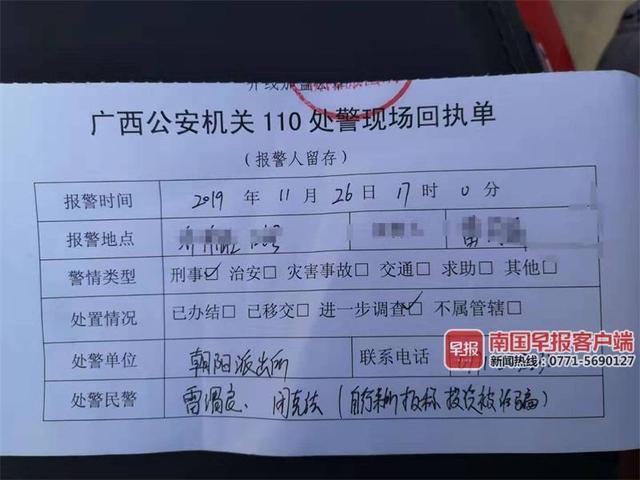 广西公安机关 110 处警现场回执单
(报警人留存)
报警时间 2019 年 11 月 26 日 17 时 0 分
报警地点
警情类型 刑事☑ 治安□ 灾害事故□ 交通□ 求助□ 其他□
处置情况 已办结□ 已移交□ 进一步调查☑ 不属管辖□
处警单位 朝阳派出所 联系电话
处警民警 雷 (自行来所报称投资被诈骗)
早报 南国早报客户端
新闻热线:0771-5690127